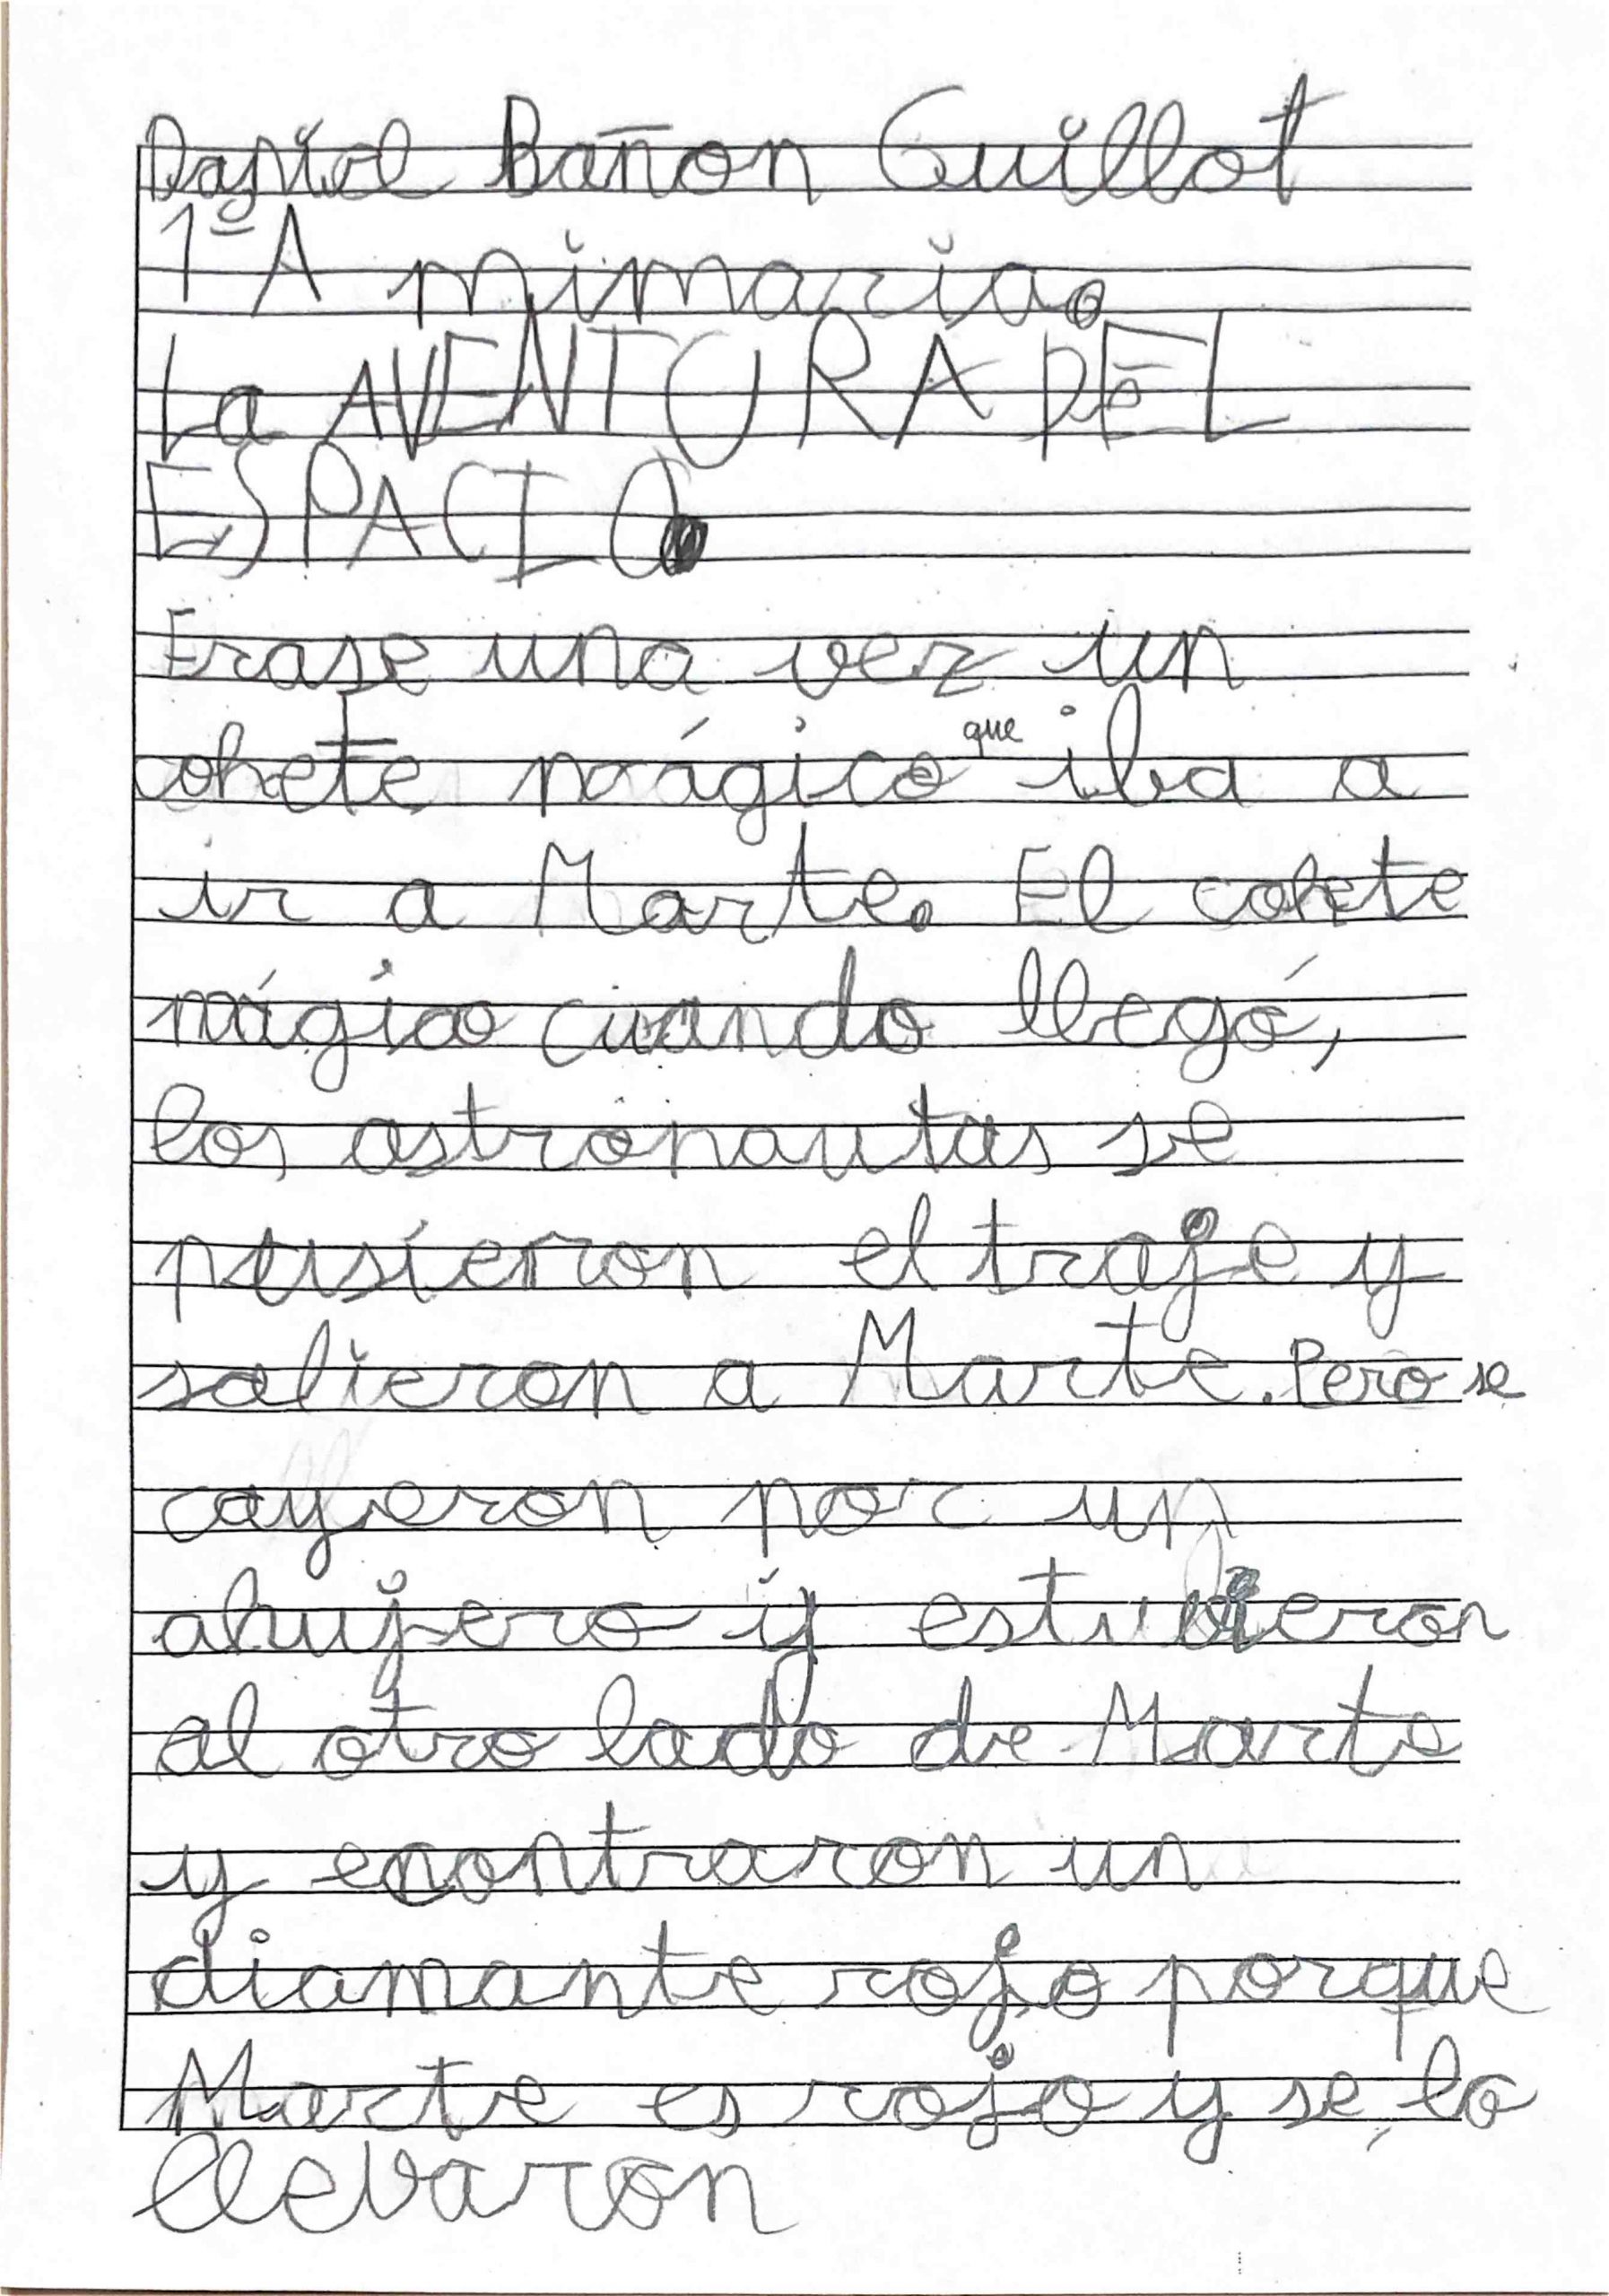 Daniel Bañon Guillot
1º A primaria.
La AVENTURA DEL
ESPACIO.
Erase una vez un
cohete mágico que iba a
ir a Marte. El cohete
mágico cuando llegó,
los astronautas se
pusieron el traje y
salieron a Marte. Pero se
cayeron por un
ahujero y estubieron
al otro lado de Marte
y encontraron un
diamante rojo porque
Marte es rojo y se lo
llevaron